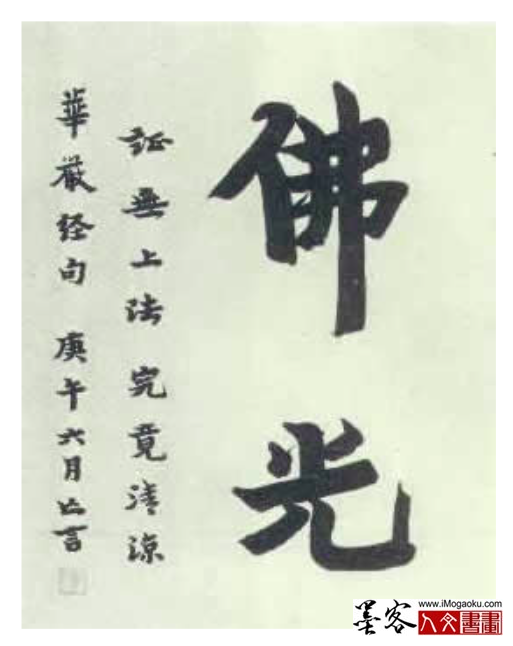 佛光
証無上法 究竟清涼
華嚴经句 庚午六月亾言
墨客
www.iMogaoku.com
人文書畫